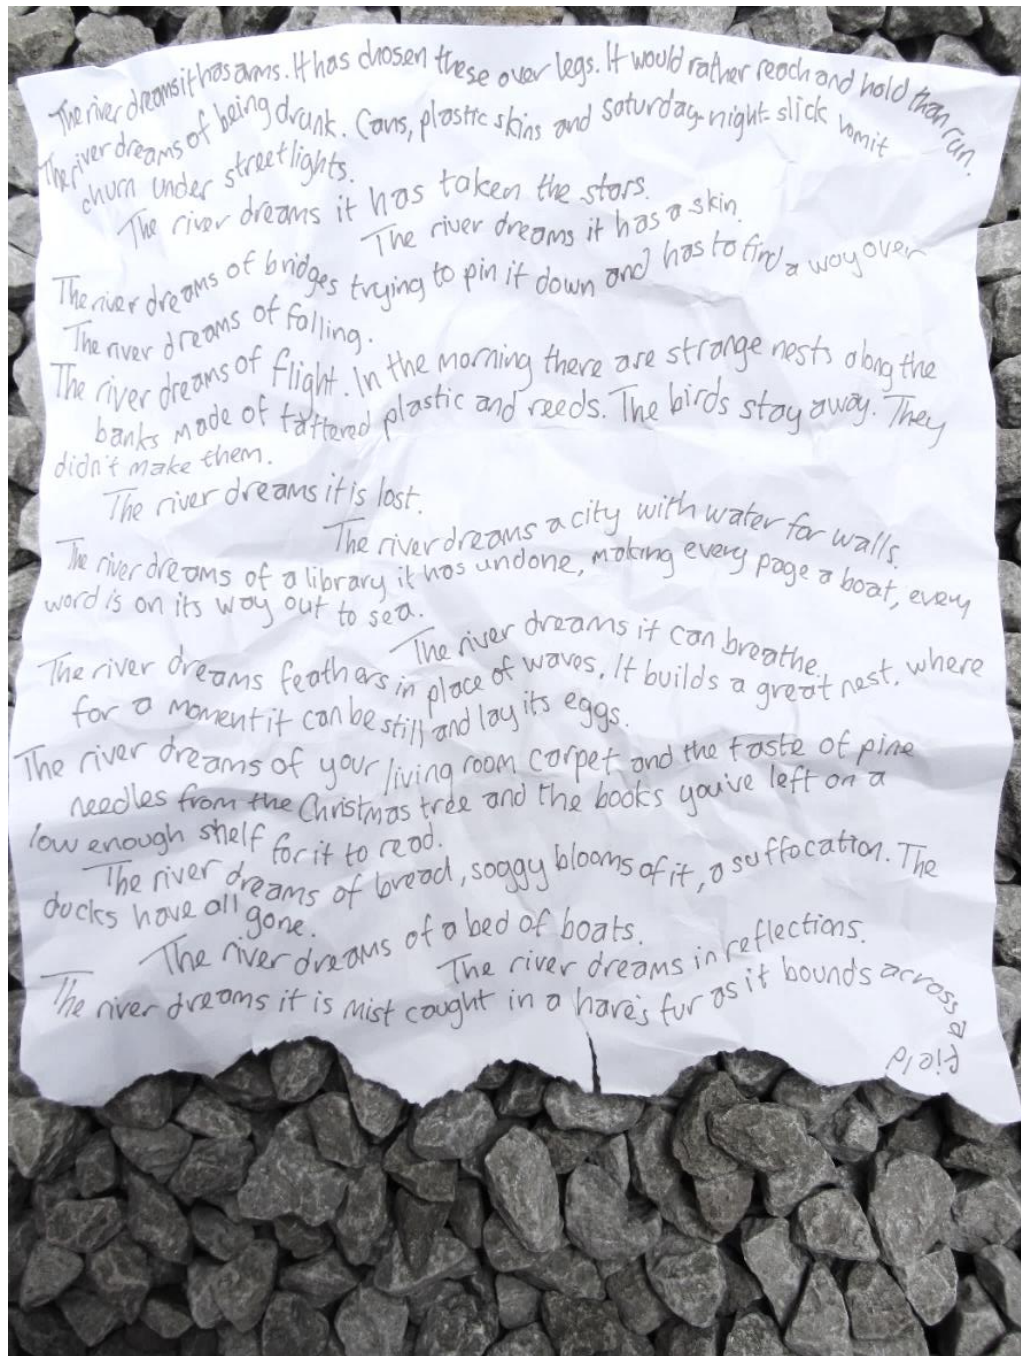 The river dreams it has arms. It has chosen these over legs. It would rather reach and hold than run.
The river dreams of being drunk. Cans, plastic skins and saturday-night-slick vomit
churn under streetlights.
The river dreams it has taken the stars.
The river dreams it has a skin.
The river dreams of bridges trying to pin it down and has to find a way over
The river dreams of falling.
The river dreams of flight. In the morning there are strange nests along the
banks made of tattered plastic and reeds. The birds stay away. They
didn't make them.
The river dreams it is lost.
The river dreams a city with water for walls.
The river dreams of a library it has undone, making every page a boat, every
word is on its way out to sea.
The river dreams it can breathe.
The river dreams feathers in place of waves. It builds a great nest. where
for a moment it can be still and lay its eggs.
The river dreams of your living room carpet and the taste of pine
needles from the Christmas tree and the books you've left on a
low enough shelf for it to read.
The river dreams of bread, soggy blooms of it, a suffocation. The
ducks have all gone.
The river dreams of a bed of boats.
The river dreams in reflections.
The river dreams it is mist caught in a hare's fur as it bounds across a
field